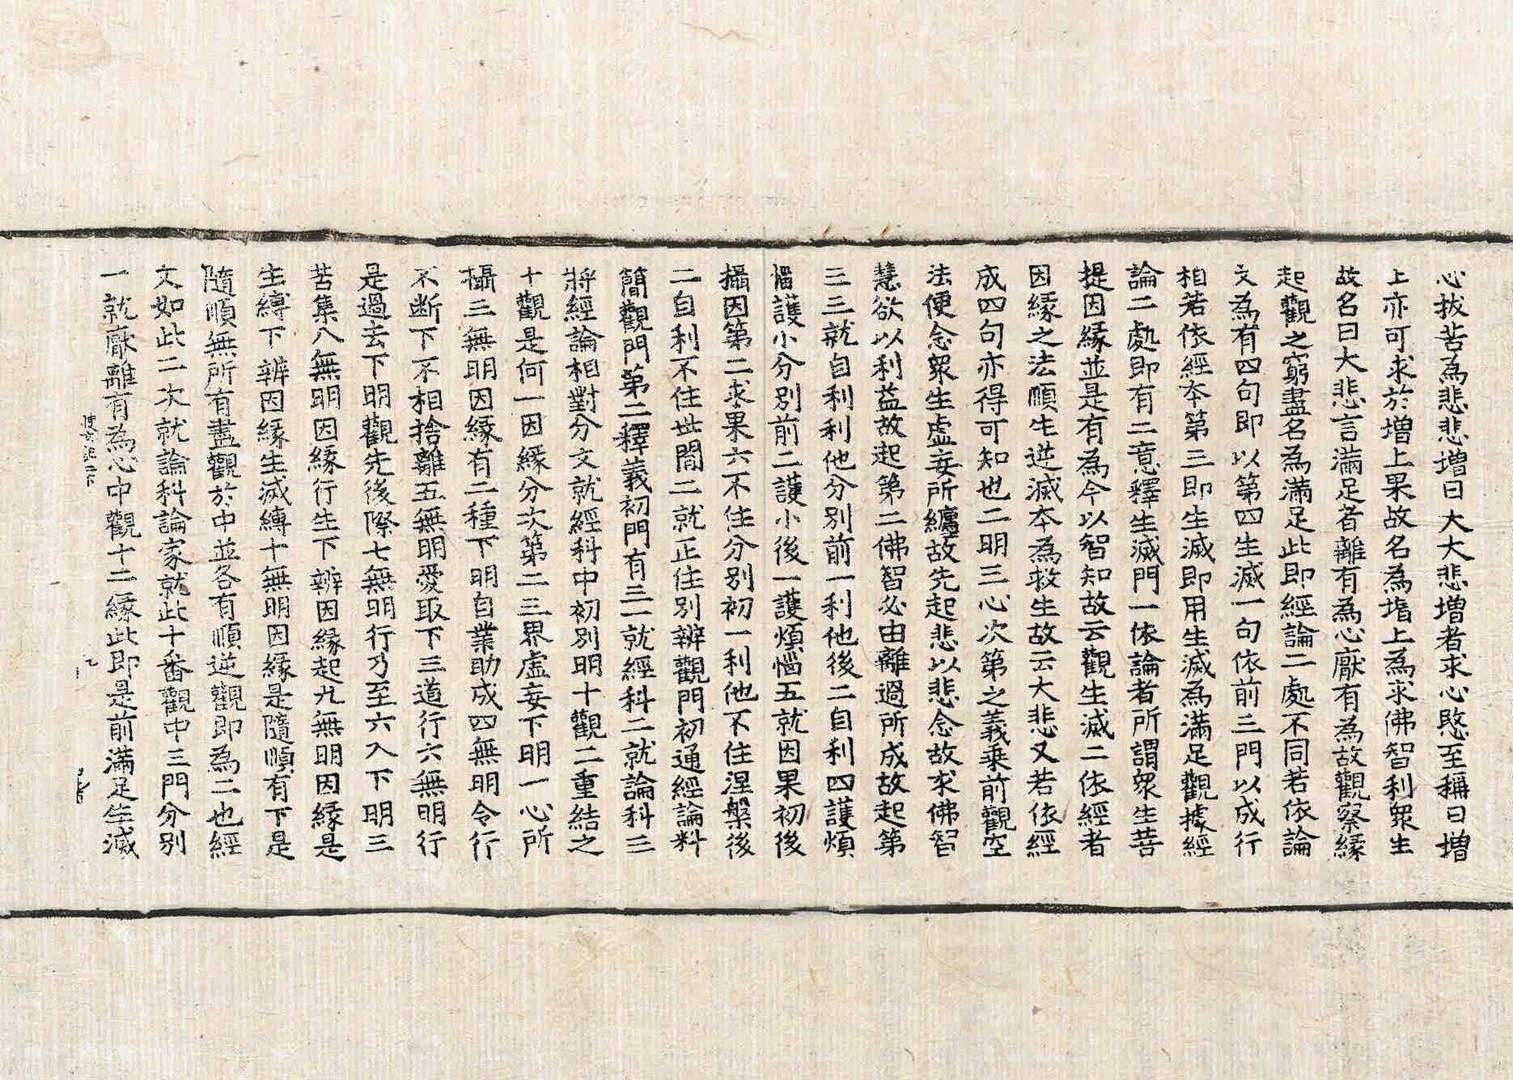 心拔苦為悲悲增曰大大悲增者求心愍至稱曰增
上亦可求於增上果故名為增上為求佛智利衆生
故名曰大悲言滿足者離有為心厭有為故觀察緣
起觀之窮盡名為滿足此即經論二處不同若依論
文為有四句即以第四生滅一句依前三門以成行
相若依經本第三即生滅即用生滅為滿足觀據經
論二處即有二意釋生滅門一依論者所謂衆生菩
提因緣並是有為今以智知故云觀生滅二依經者
因緣之法順生逆滅本為救生故云大悲又若依經
成四句亦得可知也二明三心次第之義乘前觀空
法便念衆生虛妄所纏故先起悲以悲念故求佛智
慧欲以利益故起第二佛智必由離過所成故起第
三三就自利利他分別前一利他後二自利四護煩
惱護小分別前二護小後一護煩惱五就因果初後
攝因第二求果六不住分別初一利他不住涅槃後
二自利不住世間二就正住別辨觀門初通經論料
簡觀門第二釋義初門有三一就經科二就論科三
將經論相對分文就經科中初別明十觀二重結之
十觀是何一因緣分次第二三界虛妄下明一心所
攝三無明因緣有二種下明自業助成四無明令行
不斷下不相捨離五無明愛取下三道行六無明行
是過去下明觀先後際七無明行乃至六入下明三
苦集八無明因緣行生下辨因緣起九無明因緣是
生縛下辨因緣生滅縛十無明因緣是隨順有下是
隨順無所有盡觀於中並各有順逆觀即為二也經
文如此二次就論科論家就此十番觀中三門分別
一就厭離有為心中觀十二緣此即是前滿足生滅